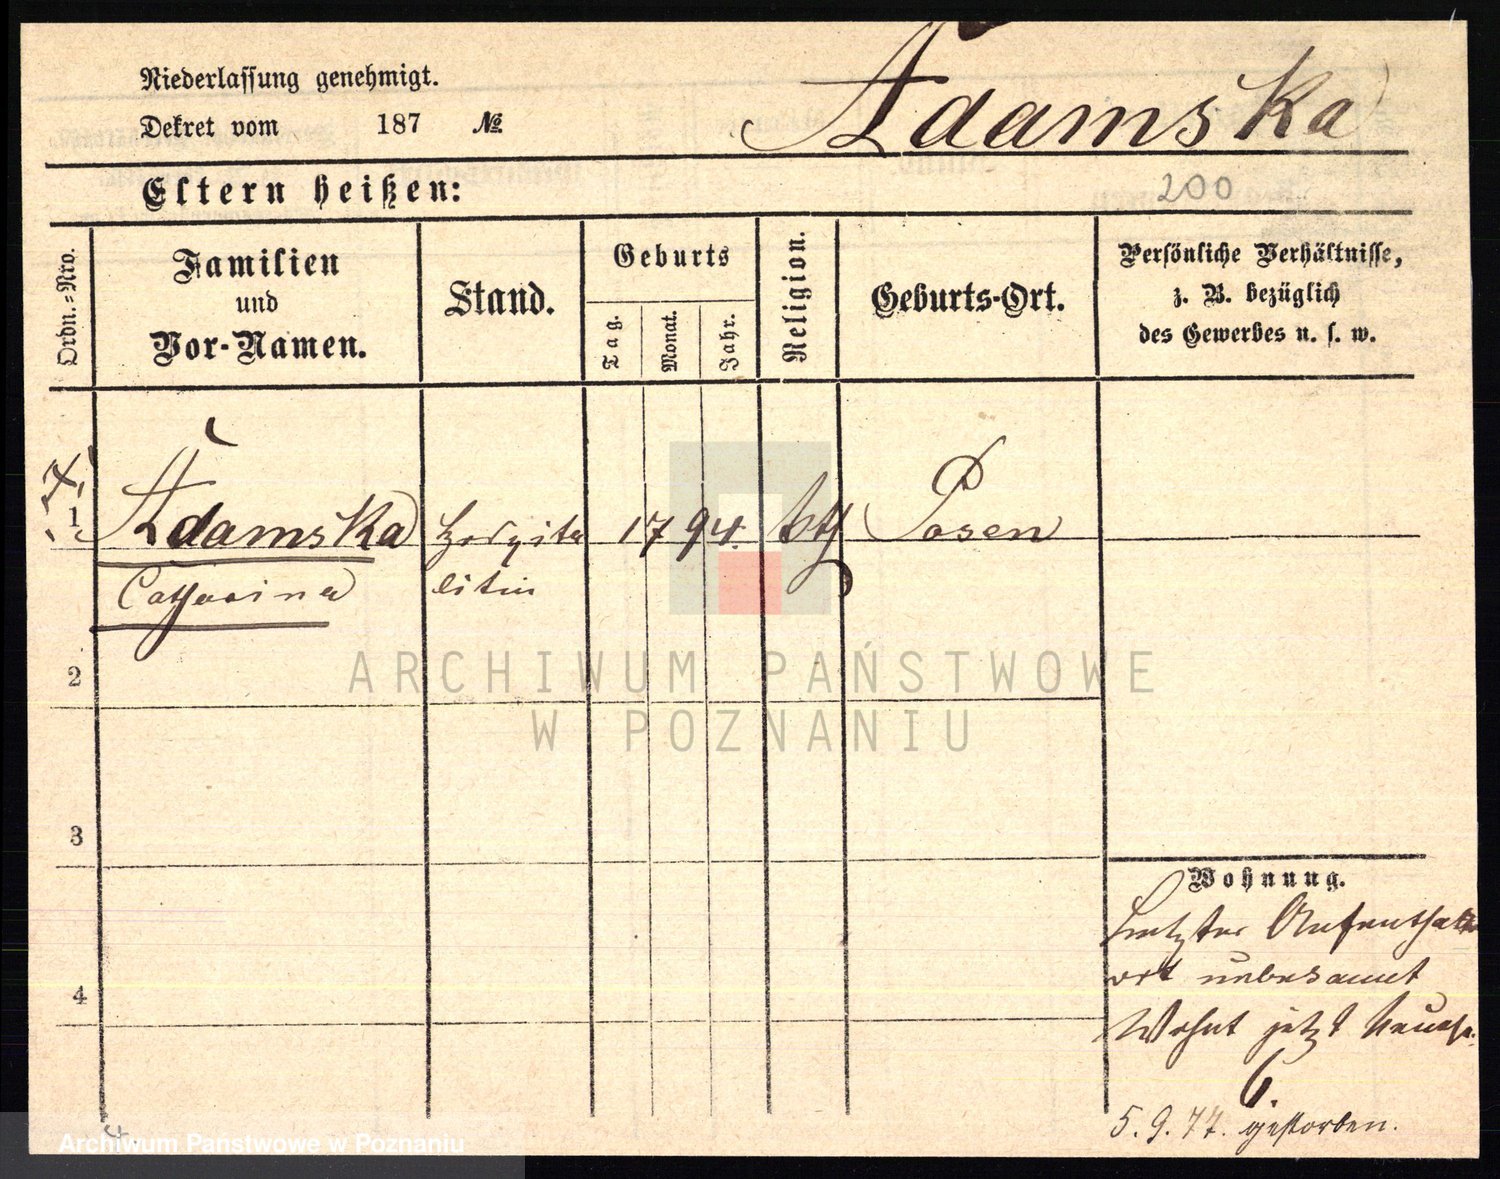 Niederlassung genehmigt.
Dekret vom 187 №
Adamska
Eltern heißen:
200
Ordn.-Nro.
Familien
und
Vor-Namen.
Stand.
Geburts
Tag.
Monat.
Jahr.
Religion.
Geburts-Ort.
Persönliche Verhältnisse,
z. B. bezüglich
des Gewerbes u. s. w.
1
Adamska
Catharina
Hospita
litin
1794.
kth
Posen
2
3
4
Wohnung.
Letzter Aufenthalts
ort unbekannt
Wohnt jetzt
6.
5. 9. 77. gestorben.
ARCHIWUM PAŃSTWOWE
W POZNANIU
Archiwum Państwowe w Poznaniu